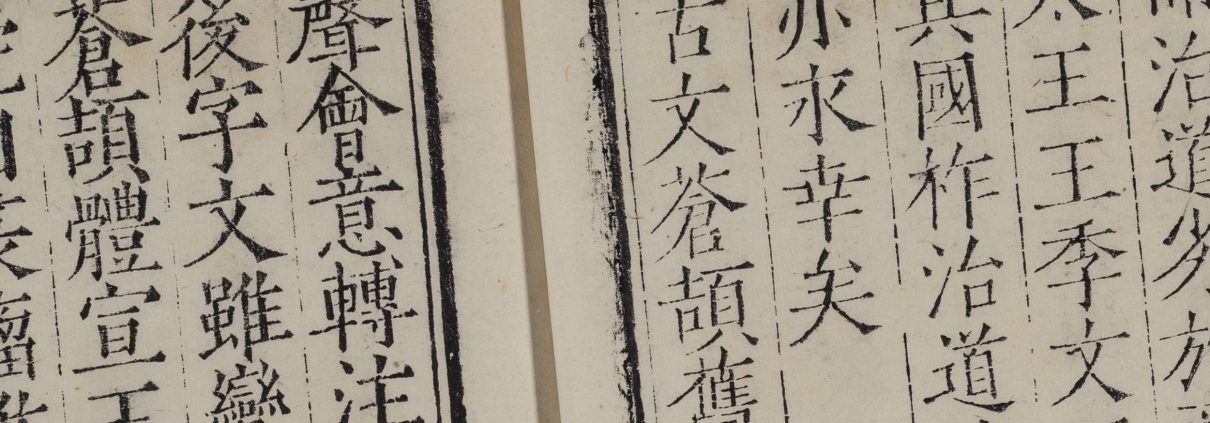 治道方
太王王季文
其國祚治道
亦永幸矣
古文蒼頡舊
聲會意轉注
後字文雖變
蒼頡體宣王